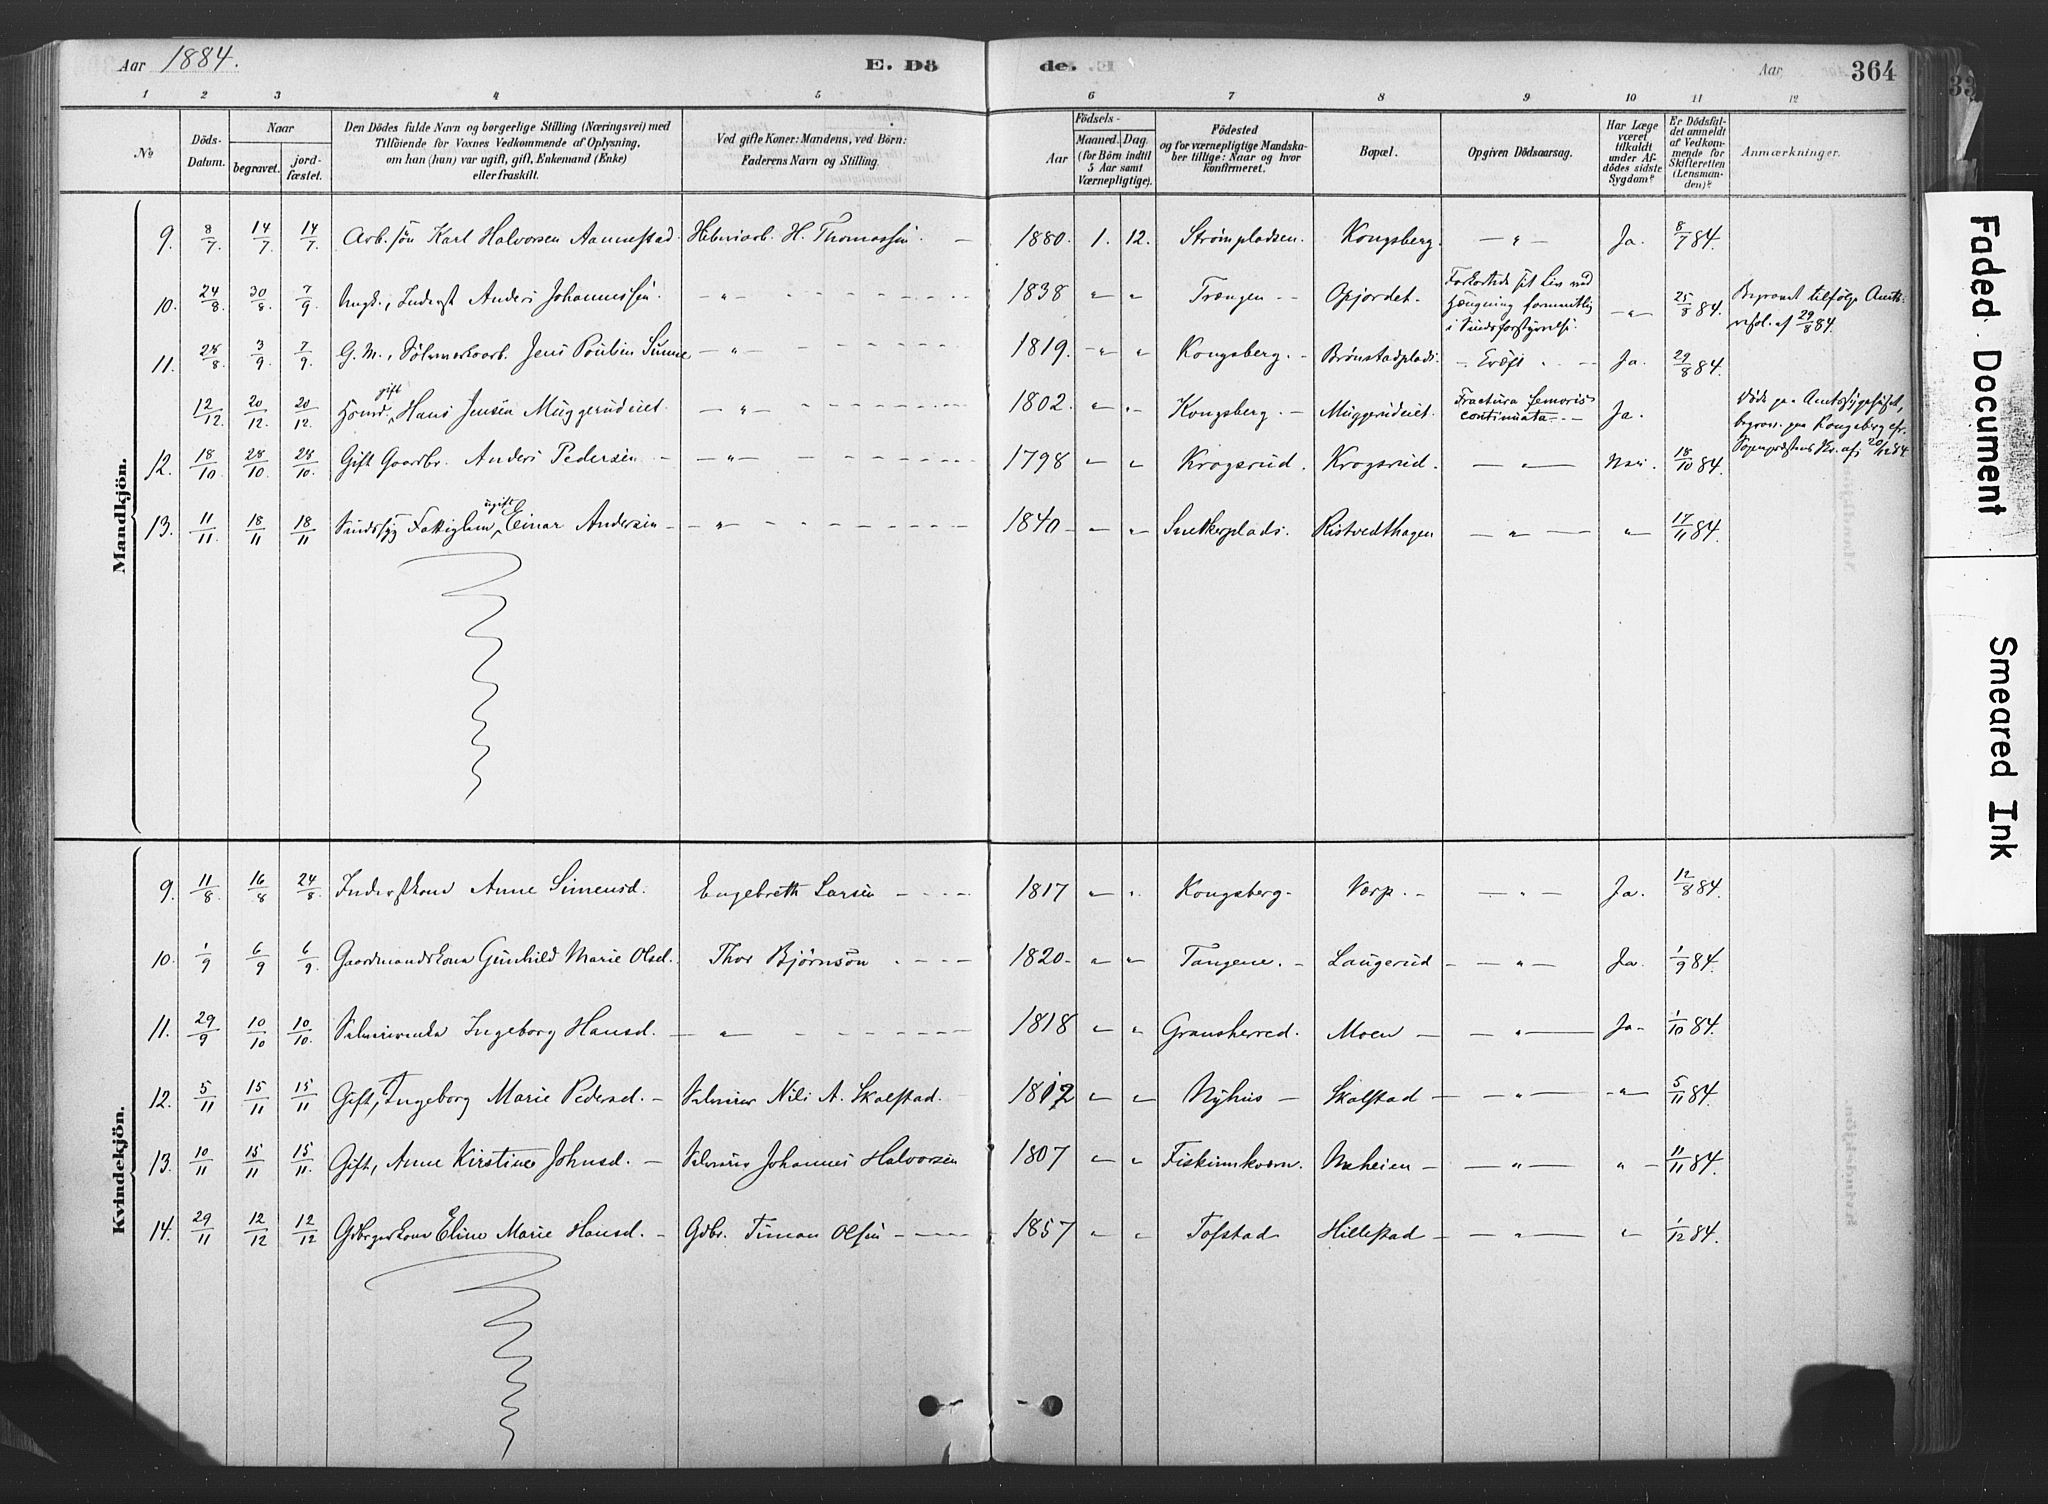 Aar 1884.
E. Dö
de.
Aar
364
1 2 3 4 5 6 7 8 9 10 11 12
No
Döds-Datum.
Naar
begravet.
jord-fæstet.
Den Dödes fulde Navn og borgerlige Stilling (Næringsvei) med
Tilföiende for Voxnes Vedkommende af Oplysning,
om han (hun) var ugift, gift, Enkemand (Enke)
eller fraskilt.
Ved gifte Koner: Mandens, ved Börn:
Faderens Navn og Stilling.
Födsels-
Aar
Maaned. Dag.
(for Börn indtil
5 Aar samt
Værnepligtige).
Födested
og for værnepligtige Mandska-
ber tillige: Naar og hvor
konfirmeret.
Bopæl.
Opgiven Dödsaarsag.
Har Læge
været
tilkaldt
under Af-
dödes sidste
Sygdom?
Er Dödsfal-
det anmeldt
af Vedkom-
mende for
Skifteretten
(Lensman-
den)?
Anmærkninger.
Mandkjön.
9. 8/7 14/7 14/7 Arb. sön Karl Halvorsen Aannestad. H. Thomassen. — 1880. 1. 12. Strömpladsen. Kongsberg. — " — Ja. 8/7 84.
10. 24/8 30/8 7/9 Ungk., Inderst Anders Johannessen. — " — 1838 " " Trængen — Opjordet. Forkortede sit Liv ved
Hængning formentlig
i Sindsforstyrrelse. — " — 25/8 84. Begravet tilfölge Amts-
resol. af 29/8 84.
11. 28/8 3/9 7/9 G. M., Sölvverksarb. Jens Poulsen — " — 1819. " " Kongsberg. — Brönstadplads. Ja. 29/8 84.
12/12 20/12 20/12 gift Hans Jensen Muggerudeiet. — " — 1802. " " Kongsberg. — Muggerudeiet. Fractura femoris
continuata — Ja. Döde paa Amtssygehuset,
begrav. paa Kongsberg efr.
Sogneprestens af 20/12 84
12. 18/10 28/10 28/10 Gift Gaardbr. Anders Pedersen — — " — 1798 " " Krogsrud. Krogsrud. — " — Nei. 18/10 84.
13. 11/11 18/11 18/11 Sindssyg Fattiglem, ugift Einar Andersen — — " — 1840 — " " Snekkerplads. Ristvedthagen — " — " 17/11 84.
Kvindekjön.
9. 11/8 16/8 24/8 Inderstkone Anne Simensd. Engebreth Larsen — 1817 " " Kongsberg — Vorp. — — " — Ja. 12/8 84.
10. 1/9 6/9 6/9 Gaardmandskone Gunhild Marie Olsd. Thor Björnsön — 1820 — " " Tangene. — Laugerud — " — Ja. 1/9 84.
11. 29/9 10/10 10/10 Selveierenke Ingeborg Hansd. — " — 1818 " " Gransherred. Moen — " — Ja — 1/10 84.
12. 5/11 15/11 15/11 Gift, Ingeborg Marie Pedersd. — Selveier Nils A. Skalstad. 1812 " " Nyhus — Skalstad — " — " 5/11 84.
13. 10/11 15/11 15/11 Gift, Anne Kirstine Johnsd. — Selveier Johannes Halvorsen 1807 " " Fiskumkvern. — " — " 11/11 84.
14. 29/11 12/12 12/12 Gdbrgerkone Eline Marie Hansd. — Gdbr. Timan Olsen — 1857 " " Tofstad Hillestad — " — " 1/12 84.
Faded Document
Smeared Ink